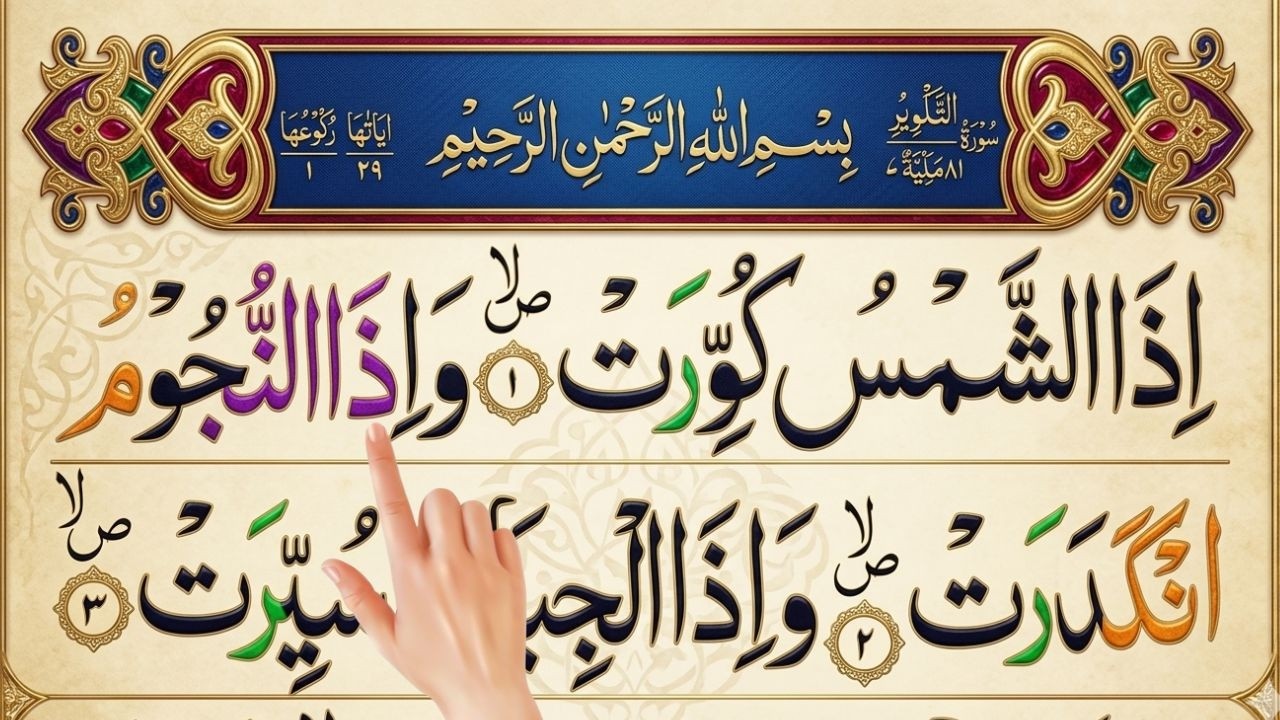 سُوْرَةُ التَّكْوِيْرِ ٨١ مَكِّيَّةٌ ٧ بِسْمِ اللهِ الرَّحْمٰنِ الرَّحِيْمِ اٰيَاتُهَا ٢٩ رُكُوْعُهَا ١
اِذَا الشَّمْسُ كُوِّرَتْ ۙ ص ١ وَاِذَا النُّجُوْمُ
انْكَدَرَتْ ۙ ص ٢ وَاِذَا الْجِبَ سُيِّرَتْ ۙ ص ٣